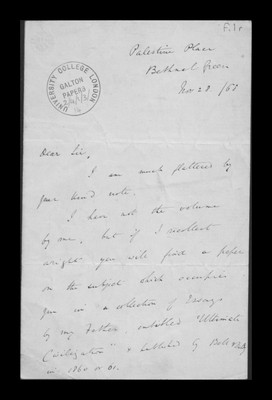 F.1r
UNIVERSITY COLLEGE LONDON
GALTON
PAPERS
Palestine Place
Bethnal Green
Nov 28 /6
Dear Sir,
I am much flattered by
your kind note.
I have not the volume
by me, but if I recollect
aright you will find a paper
on the subject which occupies
you in a collection of Essays
by my Father entitled "Ultimate
Civilization" & published by Bell & Daldy
in 1860 or 61.